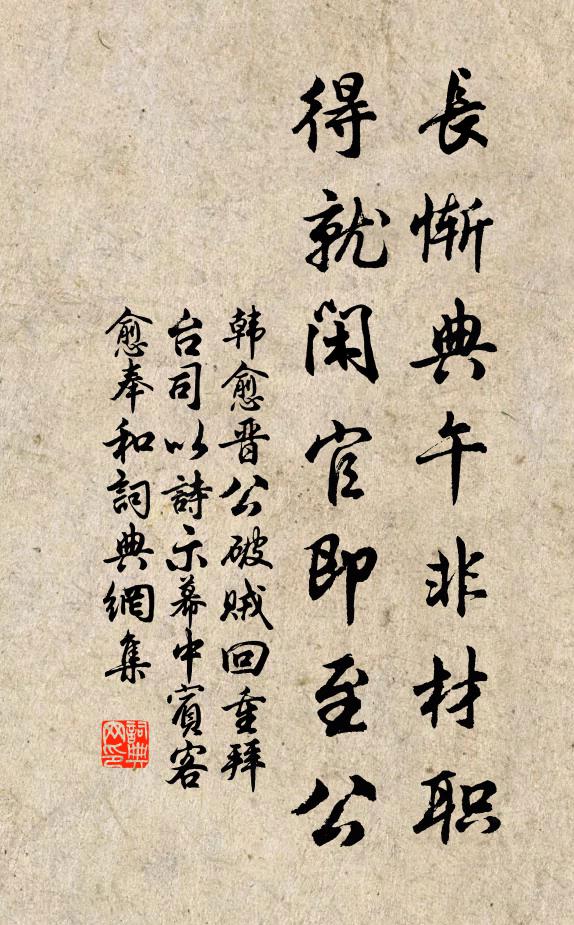 長慚典午非材职
得就閑官即至公
韩愈晋公破贼回重拜
台司以詩示幕中賓客
愈奉和詞典網集
詞典网印